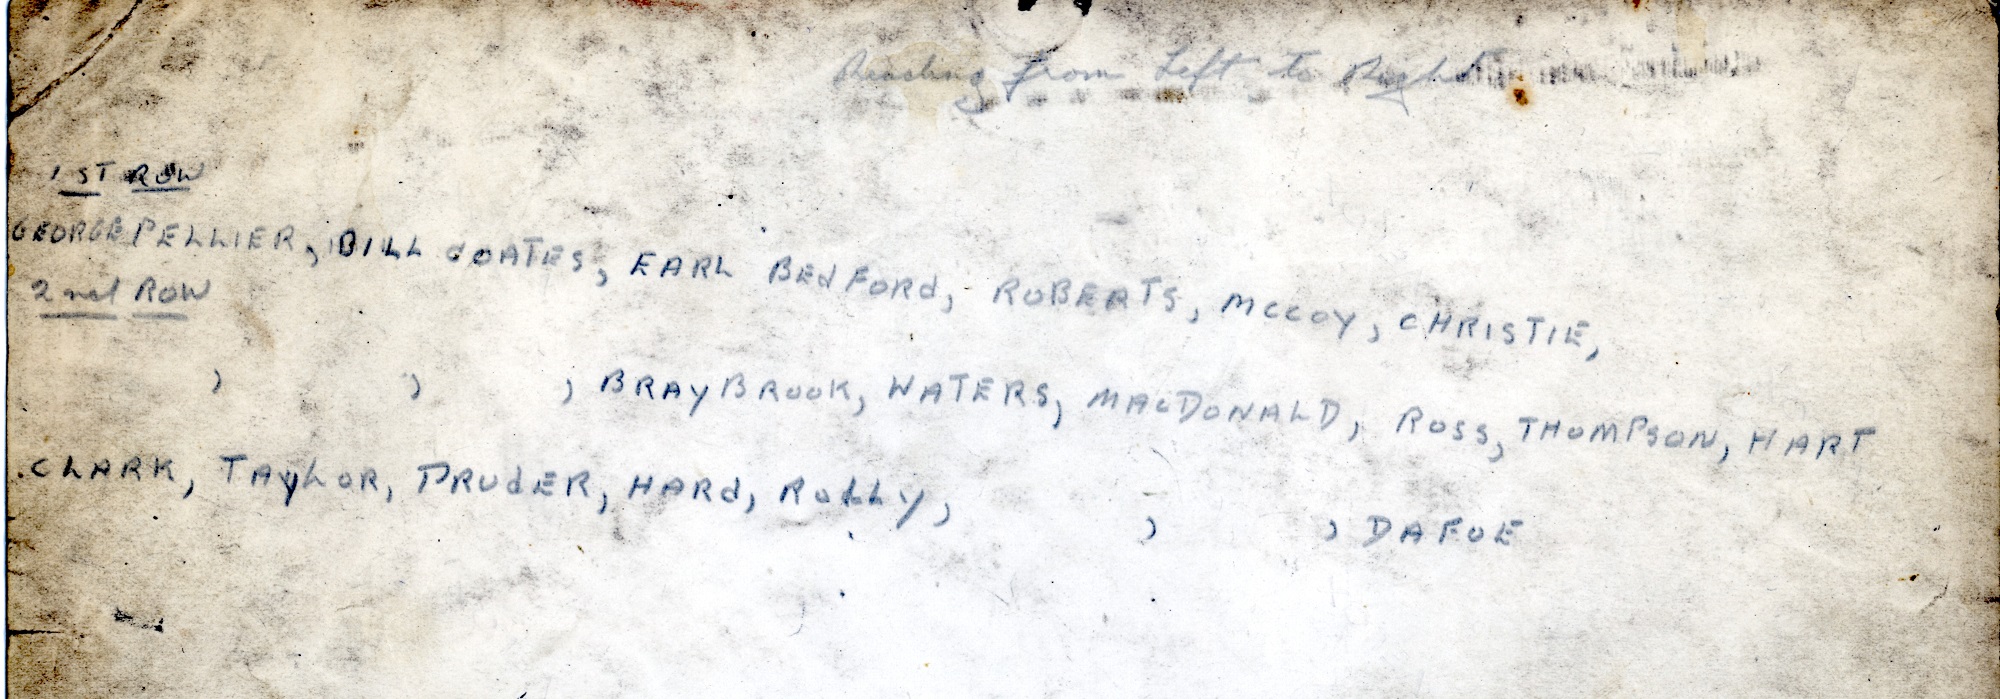 Reading from Left to Right
1ST ROW
GEORGE PELLIER, BILL COATES, EARL BEDFORD, ROBERTS, MCCOY, CHRISTIE,
2nd ROW
, , , BRAYBROOK, WATERS, MACDONALD, ROSS, THOMPSON, HART
CLARK, TAYLOR, PRUDER, HARD, ROLLY, , , DAFOE